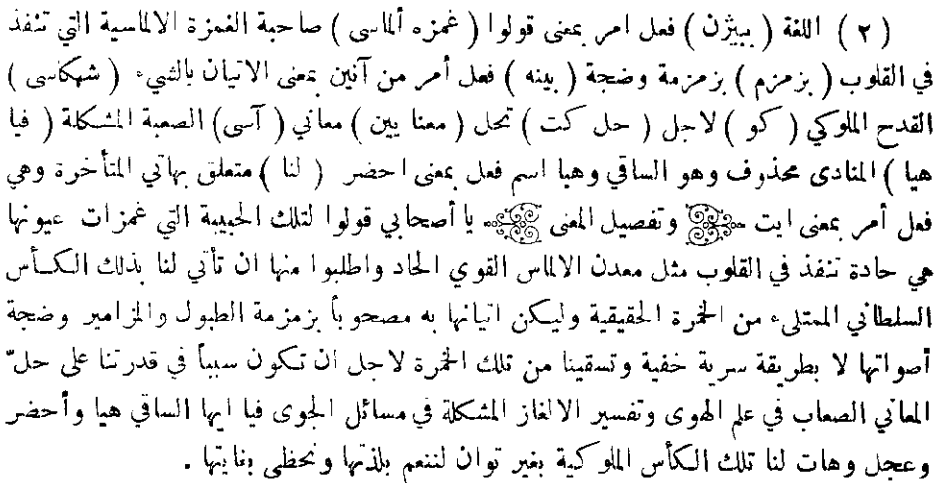 ( ٢ ) اللغة ( ببيژن ) فعل امر بمعنى قولوا ( غمزه ألماسى ) صاحبة الغمزة الالماسية التي تنفذ
في القلوب ( بزمزم ) بزمزمة وضجة ( بينه ) فعل أمر من آنين بمعنى الاتيان بالشيء ( شهكاسى )
القدح الملوكي ( كو ) لاجل ( حل كت ) تحل ( معنا يين ) معاني ( آسى ) الصعبة المشكلة ( فيا
هيا ) المنادى محذوف وهو الساقي وهيا اسم فعل بمعنى احضر ( لنا ) متعلق بهاتي المتأخرة وهي
فعل أمر بمعنى ايت وتفصيل المعنى يا أصحابي قولوا لتلك الحبيبة التي غمزات عيونها
هي حادة تنفذ في القلوب مثل معدن الالماس القوي الحاد واطلبوا منها ان تأتي لنا بذلك الكأس
السلطاني الممتلىء من الخمرة الحقيقية وليكن اتيانها به مصحوباً بزمزمة الطبول والمزامير وضجة
أصواتها لا بطريقة سرية خفية وتسقينا من تلك الخمرة لاجل ان تكون سبباً في قدرتنا على حلّ
المعاني الصعاب في علم الهوى وتفسير الالغاز المشكلة في مسائل الجوى فيا ايها الساقي هيا وأحضر
وعجل وهات لنا تلك الكأس الملوكية بغير توان لننعم بلذتها ونحظى بغايتها .